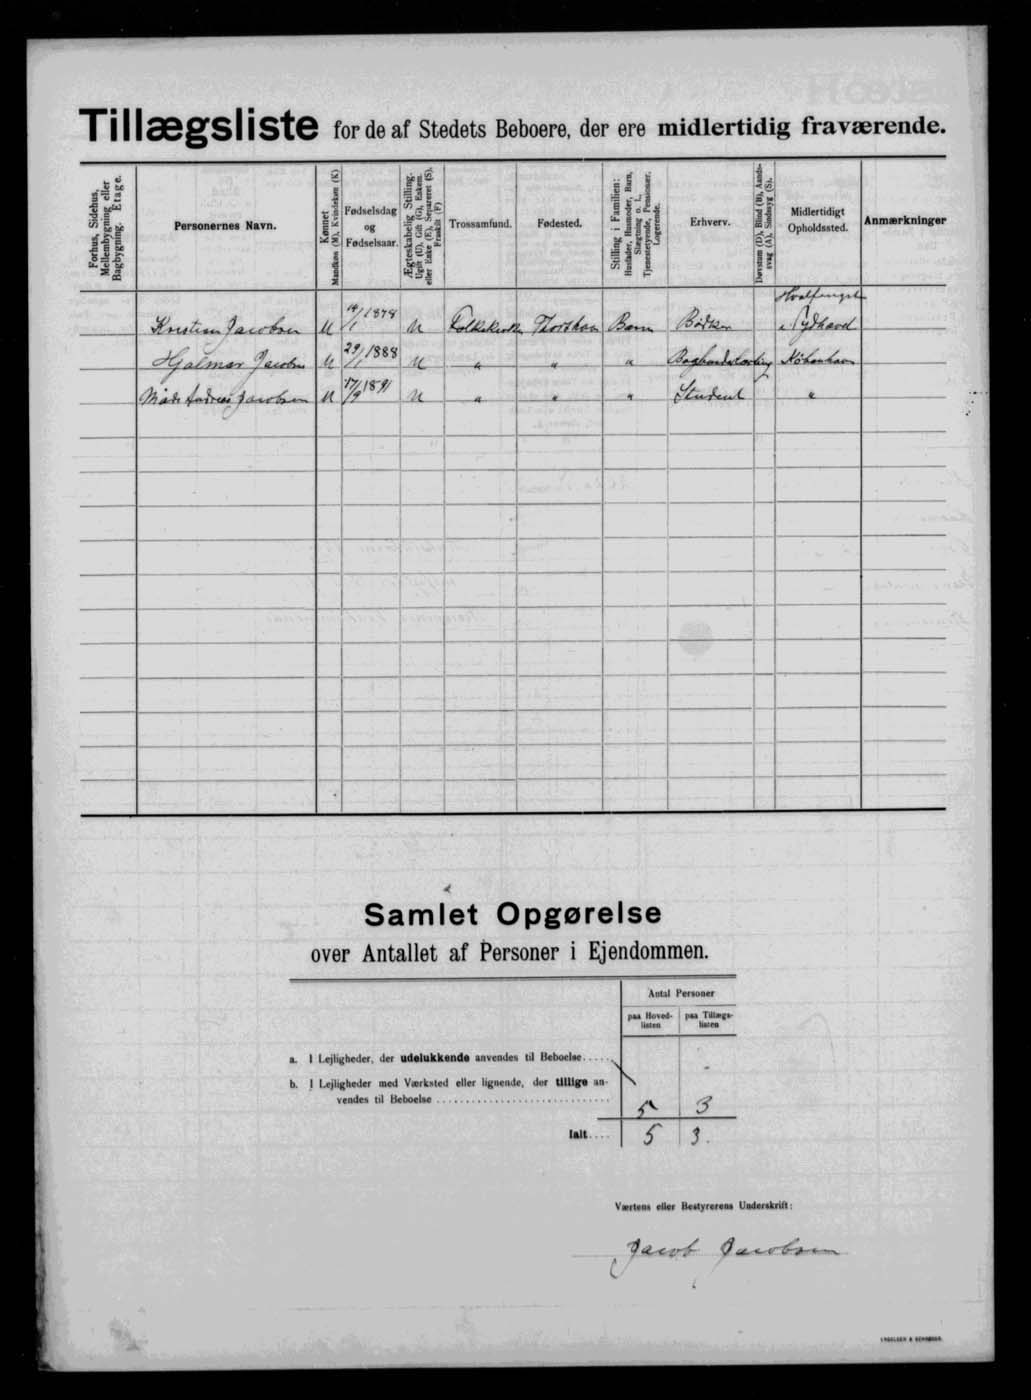 Tillægsliste for de af Stedets Beboere, der ere midlertidig fraværende.
Forhus, Sidehus, Mellembygning eller Bagbygning. Etage.
Personernes Navn.
Kønnet Mandkøn (M), Kvindekøn (K)
Fødselsdag og Fødselsaar.
Ægteskabelig Stilling. Ugift (U), Gift (G), Enkem. eller Enke (E), Separeret (S), Fraskilt (F)
Trossamfund.
Fødested.
Stilling i Familien: Husfader, Husmoder, Barn, Slægtning o. l., Tjenestetyende, Pensionær, Logerende.
Erhverv.
Døvstum (D), Blind (B), Aandssvag (A), Sindssyg (S).
Midlertidigt Opholdssted.
Anmærkninger
Kristian Jacobsen M 14/1 1878 U Folkekirken Thorshavn Barn Bødker Hvalfangst i Sydhavet
Hjalmar Jacobsen M 29/1 1888 U " " " København
Mads Andreas Jacobsen M 17/9 1891 U " " " Student "
Samlet Opgørelse
over Antallet af Personer i Ejendommen.
Antal Personer
paa Hovedlisten paa Tillægslisten
a. I Lejligheder, der udelukkende anvendes til Beboelse.....
b. I Lejligheder med Værksted eller lignende, der tillige an-
vendes til Beboelse ............................ 5 3
Ialt.... 5 3.
Værtens eller Bestyrerens Underskrift:
Jacob Jacobsen